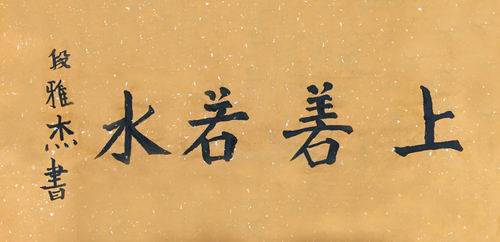 上善若水
段雅杰書